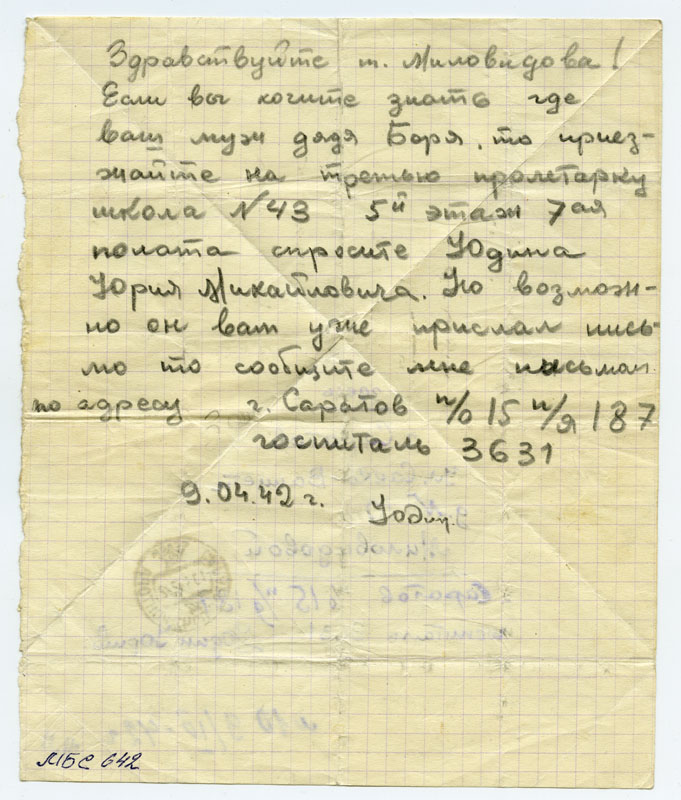 Здравствуйте т. Миловидова!
Если вы хотите знать где
ваш муж дядя Боря, то приез-
жайте на третью пролетарку
школа №43 5й этаж 7ая
полата спросите Юдина
Юрия Михайловича. Но возмож-
но он вам уже прислал пись-
мо то сообщите мне письмом
по адресу г. Саратов п/о 15 п/я 187
госпиталь 3631
9.04.42 г. Юдин.
МБС 642